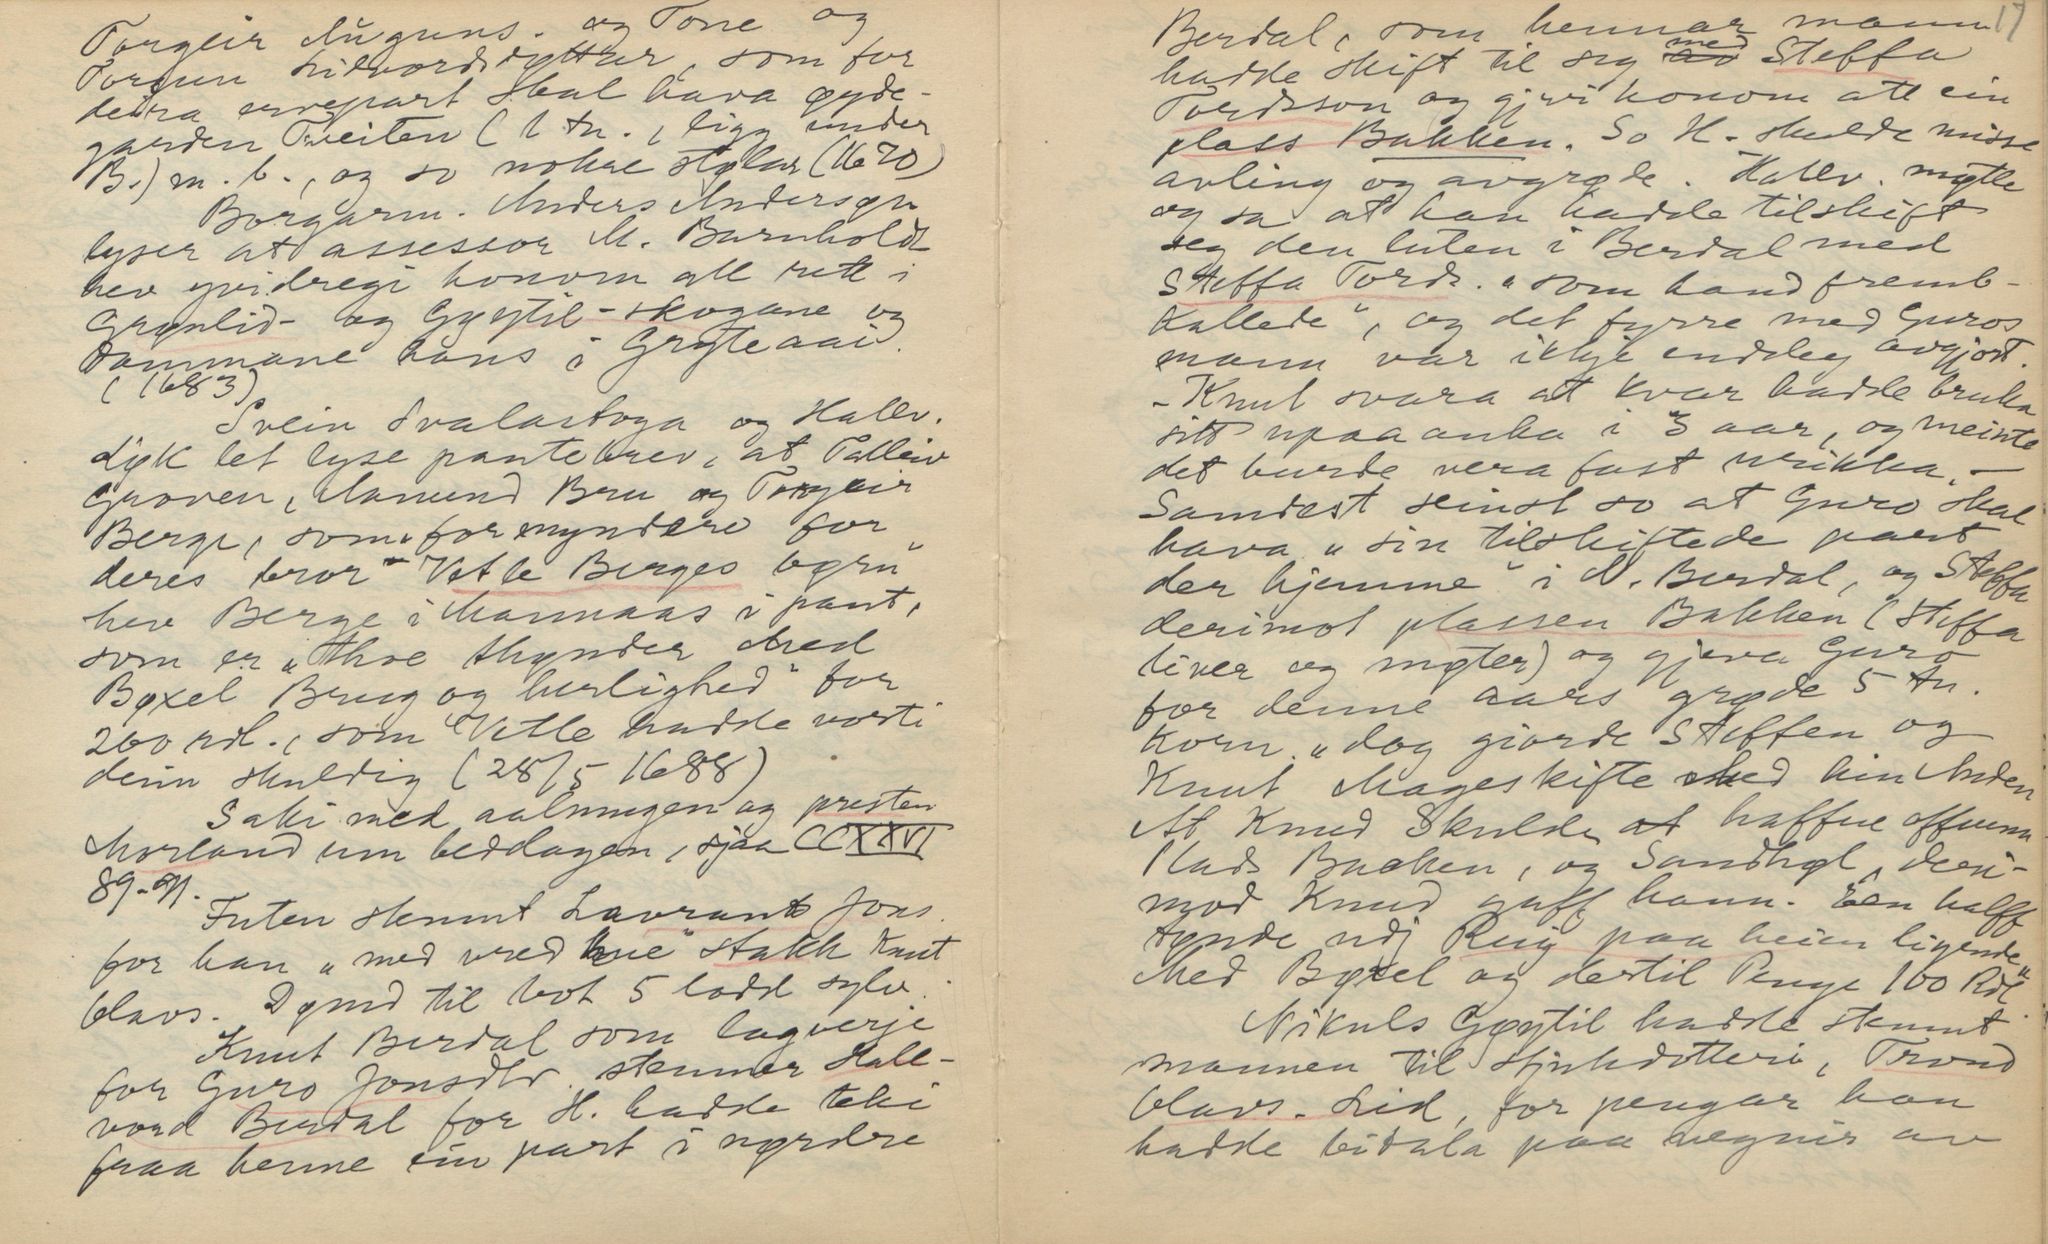 Torgeir Auguns. og Tone og
Torgun Sidvordsdøttar, som for
deira ervepart skal hava øyde-
garden Tveiten (1 tn., ligg under
B.) m. b., og so nokre stølar (1670)
Borgarm. Anders Andersøn
lyser at assessor M. Barnholdt
hev yvidregi honom all rett i
Grønlid- og Gøystil-skogane og
dammane hans i Grøteaai.
(1683)
Svein Svalastoga og Hallv.
Lijk let lyse pantebrev, at Talleiv
Groven, Aamund Bru og Torgeir
Berge, som „formyndere for
deres bror" Vetle Berges børn
hev Berge i Mannaas i pant,
som er „Thre thynder Med
Bøxel Brug og herlighed" for
260 rdl., som Vetle hadde vorti
deim skuldig (28/5 1688)
Saki med aalmugen og presten
Morland um beddagen, sjaa CCXXVI
89-91.
Futen stemnt Lavrants Jons.
for han „med vred hue" stakk Knut
Olavs. Dømd til bot 5 lodd sylv.
Knut Berdal som lagverje
for Guro Jonsdtr. stemner Hall-
vord Berdal for H. hadde teki
fraa henne ein part i nørdre
17
Berdal, som hennar mann
hadde skift til seg med Steffa
Tordsson og gjevi honom att ein
plass Bakken. So H. skulde misse
avling og avgrøde. Hallv. møtte
og sa at han hadde tilskift
seg den luten i Berdal med
Steffa Tords. „som hand fremb-
kallede", og det fyrre med Guros
mann var ikkje endeleg avgjort.
- Knut svara at kvar hadde bruka
sitt upaaanka i 3 aar, og meinte
det burde vera fast urikka. -
Samdest seinst so at Guro skal
hava „sin tilskiftede part
der hjemme" i N. Berdal, og Steffa
derimot plassen Bakken (Steffa
liver og møter) og gjeva Guro
for denne aars grøde 5 tn.
Korn. „dog giorde Steffen og
Knut Mageskifte Med hin Anden
At Knud Skulde at haffue
Plads Backen, og Sandhøl, deri-
mod Knud gaff hann. Een halff
tønde udj Ruij paa heien ligende
Med Bøxel og dertil Penge 100 Rdl"
Nikuls Gøystil hadde stemnt
mannen til stjukdotteri, Trond
Olavs. Lid, for pengar han
hadde betala paa vegnir av